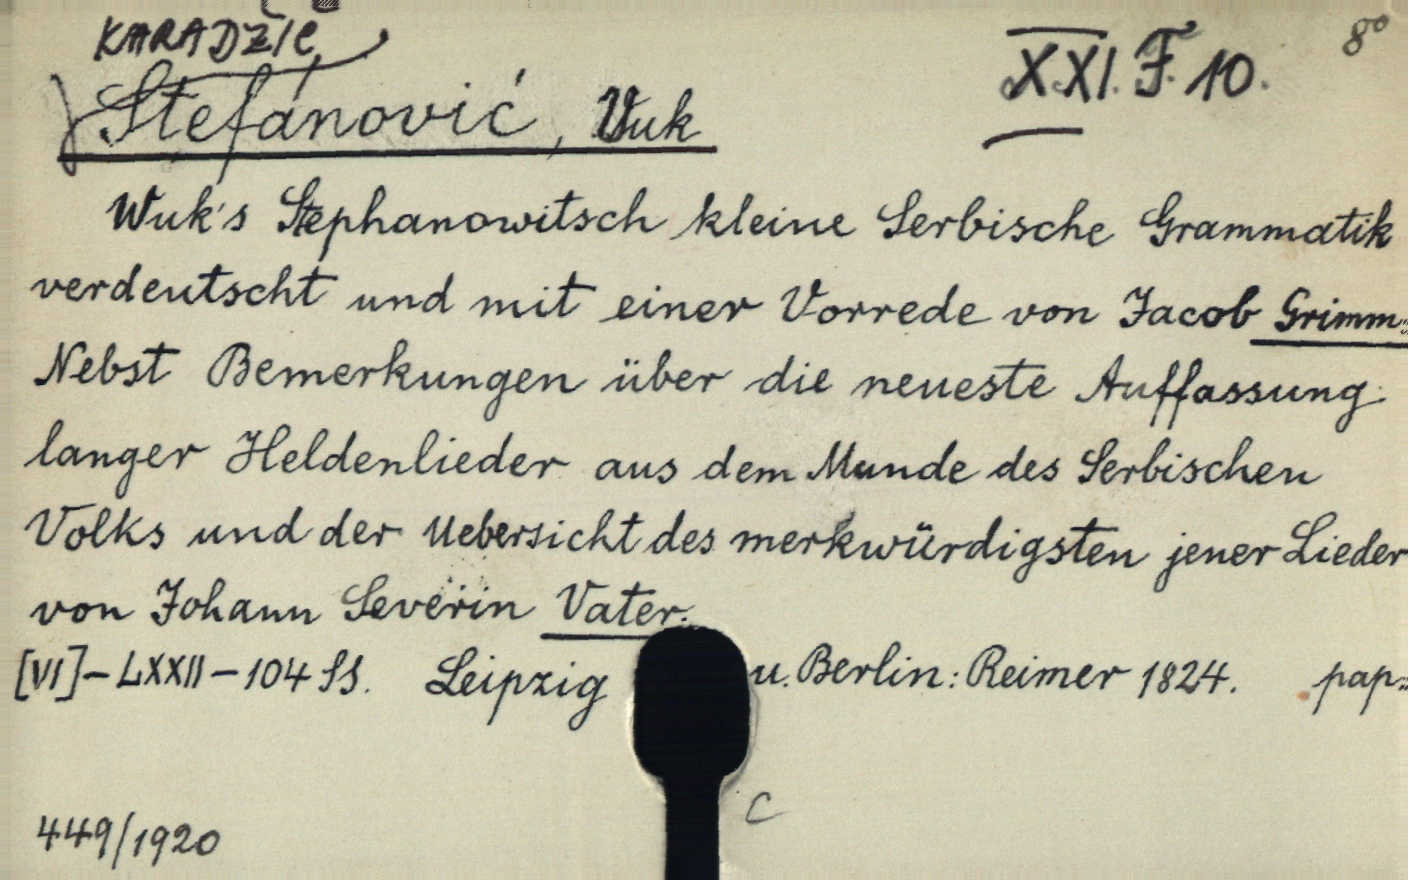 KARADŽIĆ
Stefánović, Vuk
XXI. F. 10.
8°
Wuk's Stephanowitsch kleine Serbische Grammatik
verdeutscht und mit einer Vorrede von Jacob Grimm.
Nebst Bemerkungen über die neueste Auffassung
langer Heldenlieder aus dem Munde des Serbischen
Volks und der Uebersicht des merkwürdigsten jener Lieder
von Johann Severin Vater.
[VI]-LXXII-104 SS. Leipzig u. Berlin: Reimer 1824. pap.
C
449/1920